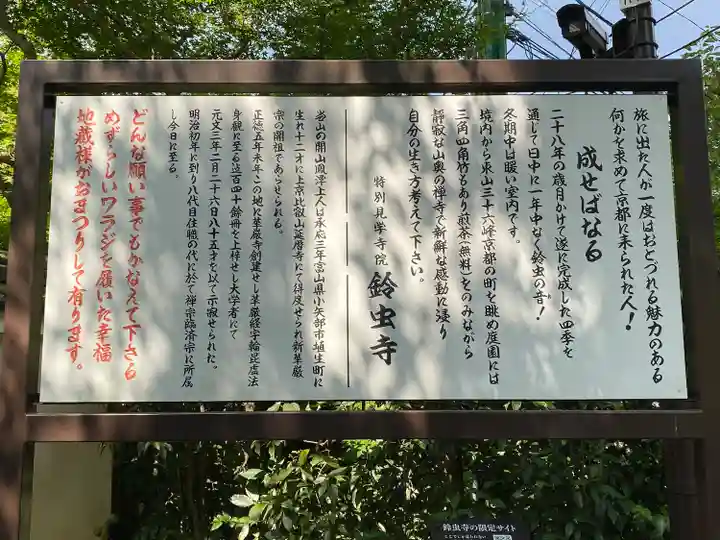 旅に出た人が一度はおとづれる魅力のある
何かを求めて京都に来られた人!
成せばなる
二十八年の歳月かけて遂に完成した四季を
通して日中に一年中なく鈴虫の音!
冬期中は暖い室内です。
境内から東山三十六峰京都の町を眺め庭園には
三角四角竹もあり煎茶(無料)をのみながら
静寂な山奥の禅寺で新鮮な感動に浸り
自分の生き方考えて下さい。
特別見学寺院 鈴虫寺
当山の開山鳳潭上人は承応三年富山県小矢部市埴生町に
生れ十二才に上京比叡山延暦寺にて得度せられ新華厳
宗の開祖であらせられる。
正徳五年未年この地に華厳寺創建せし華厳経字輪毘盧法
身観に至る迄百四十餘冊を上梓せし大学者にて
元文三年二月二十六日八十五才を以て示寂せられた。
明治初年に到り八代目住職の代に於て禅宗臨済宗に所属
し今日に至る。
どんな願い事でもかなえて下さる
めずらしいワラジを履いた幸福
地蔵様がおまつりして有ります。
鈴虫寺の限定サイト